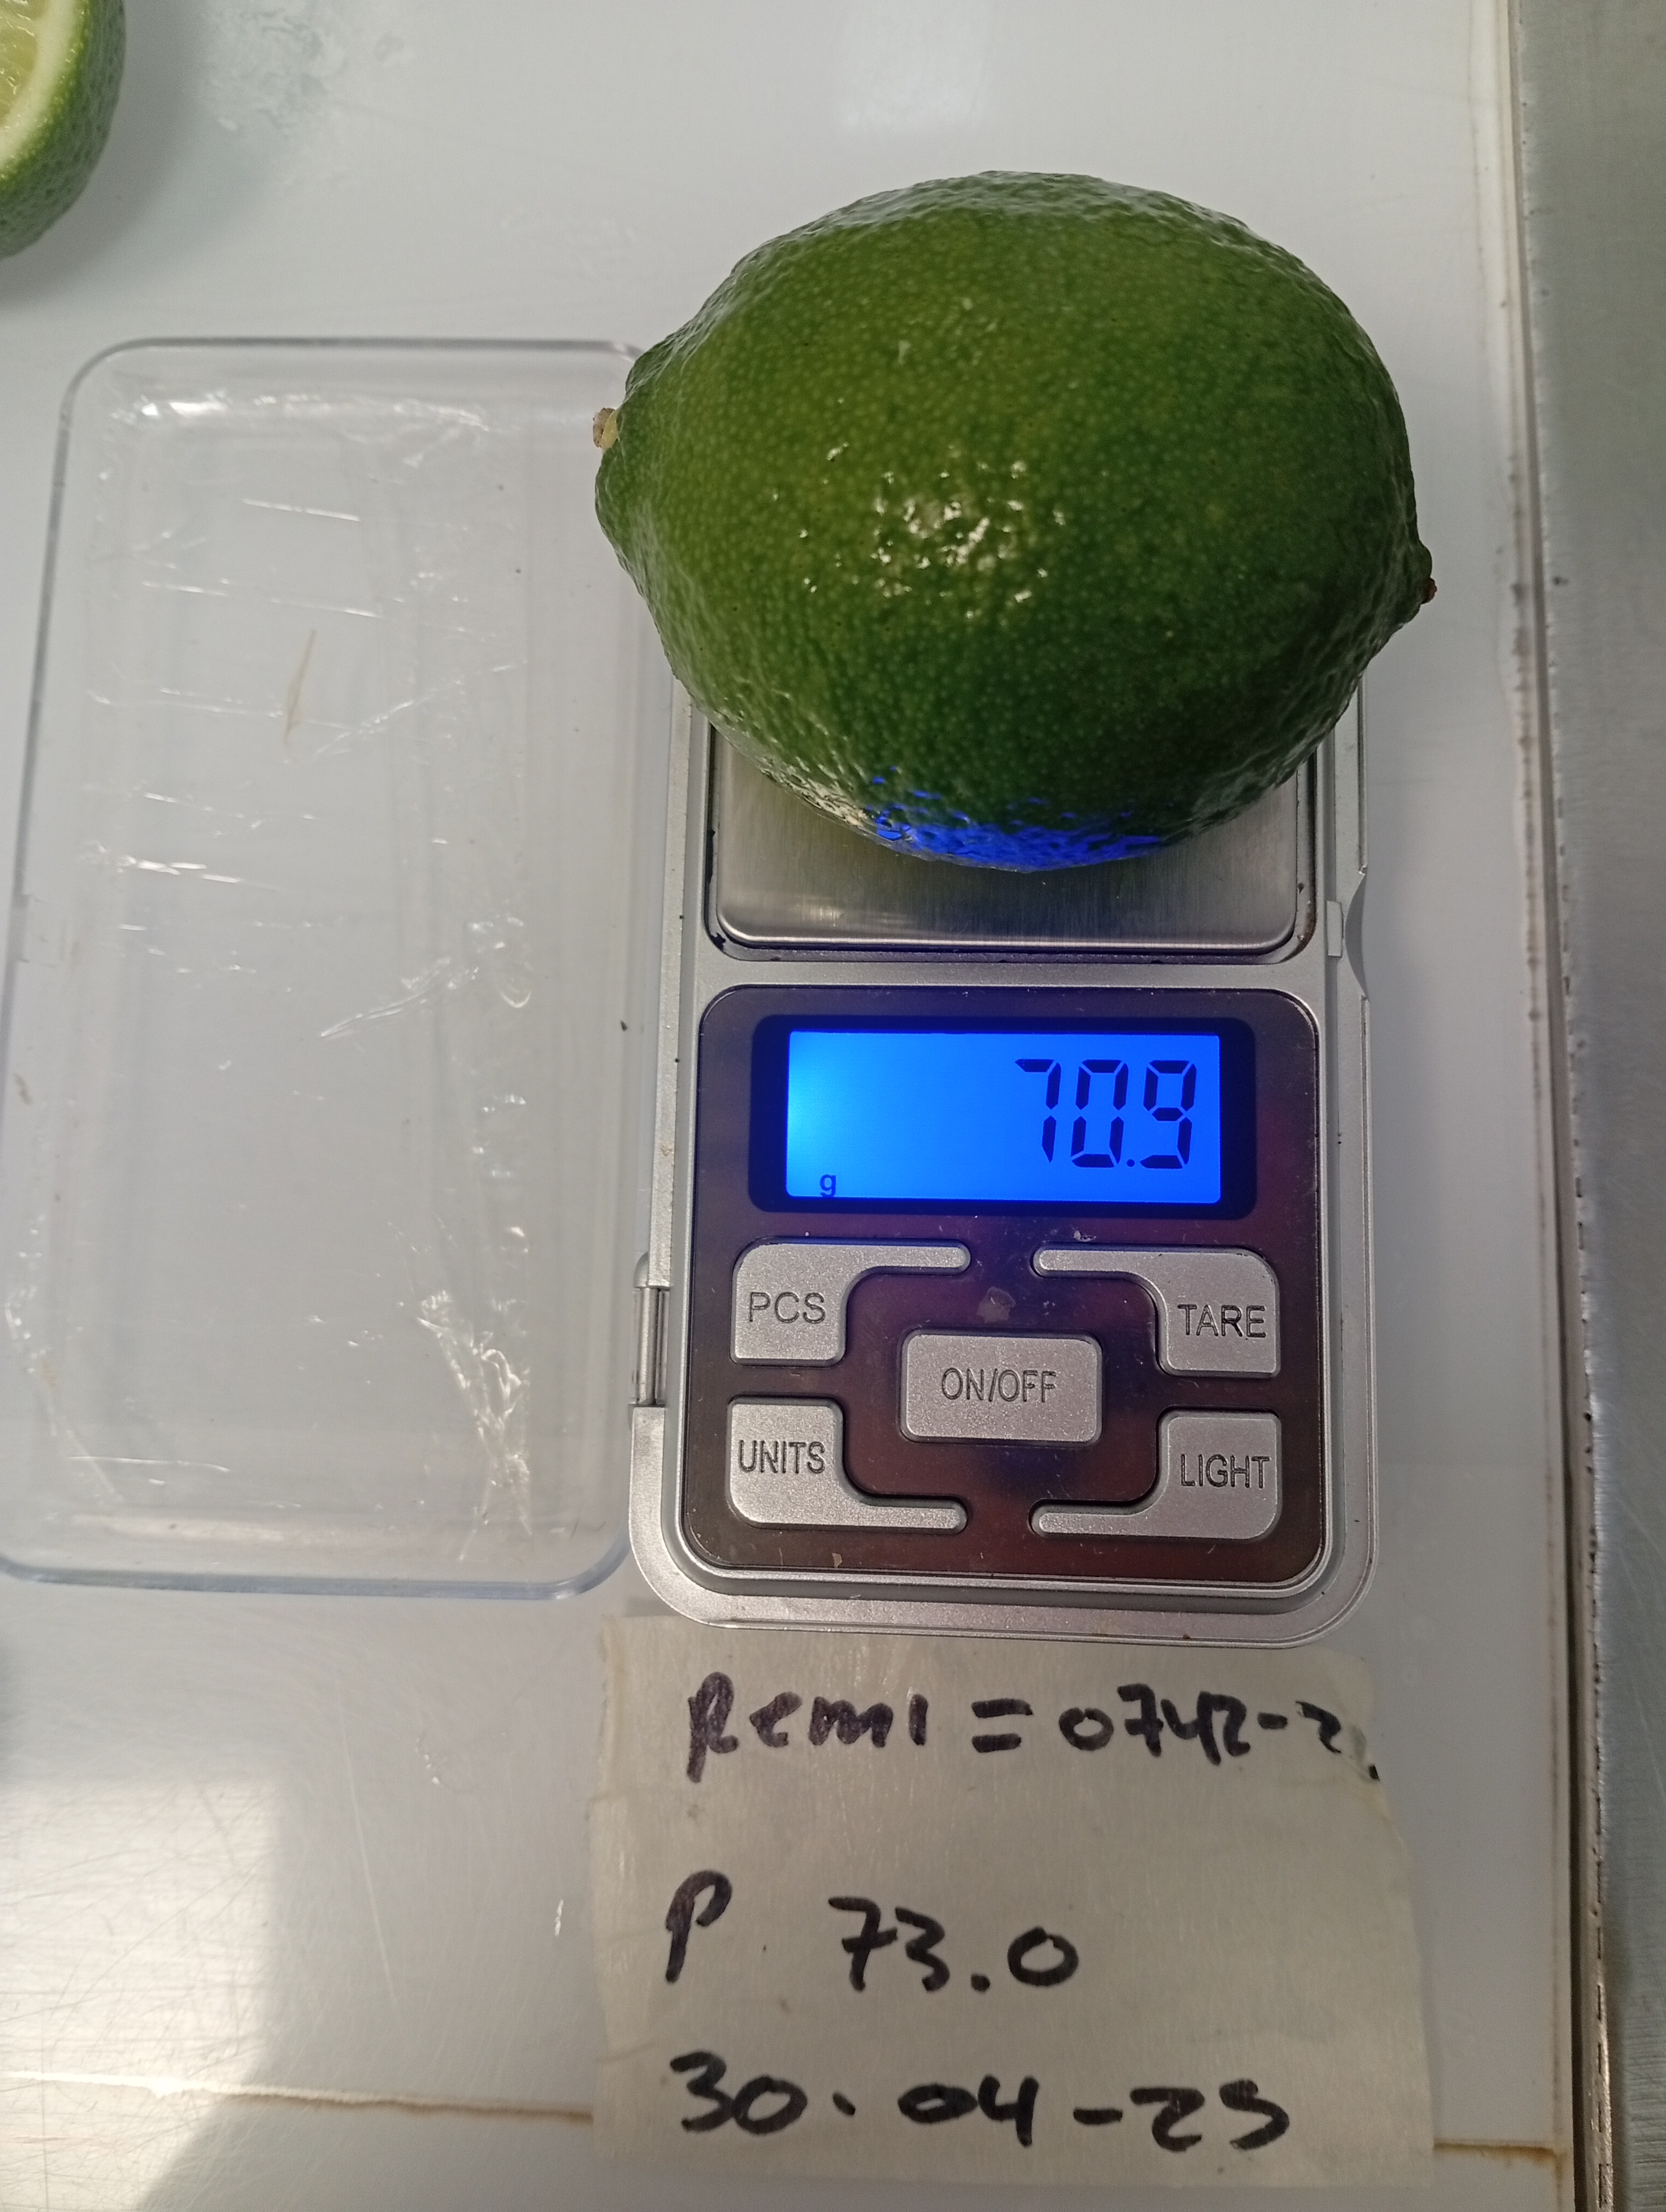 70.9
g
PCS
TARE
ON/OFF
UNITS
LIGHT
Remi = 0742-2
P. 73.0
30.04-25